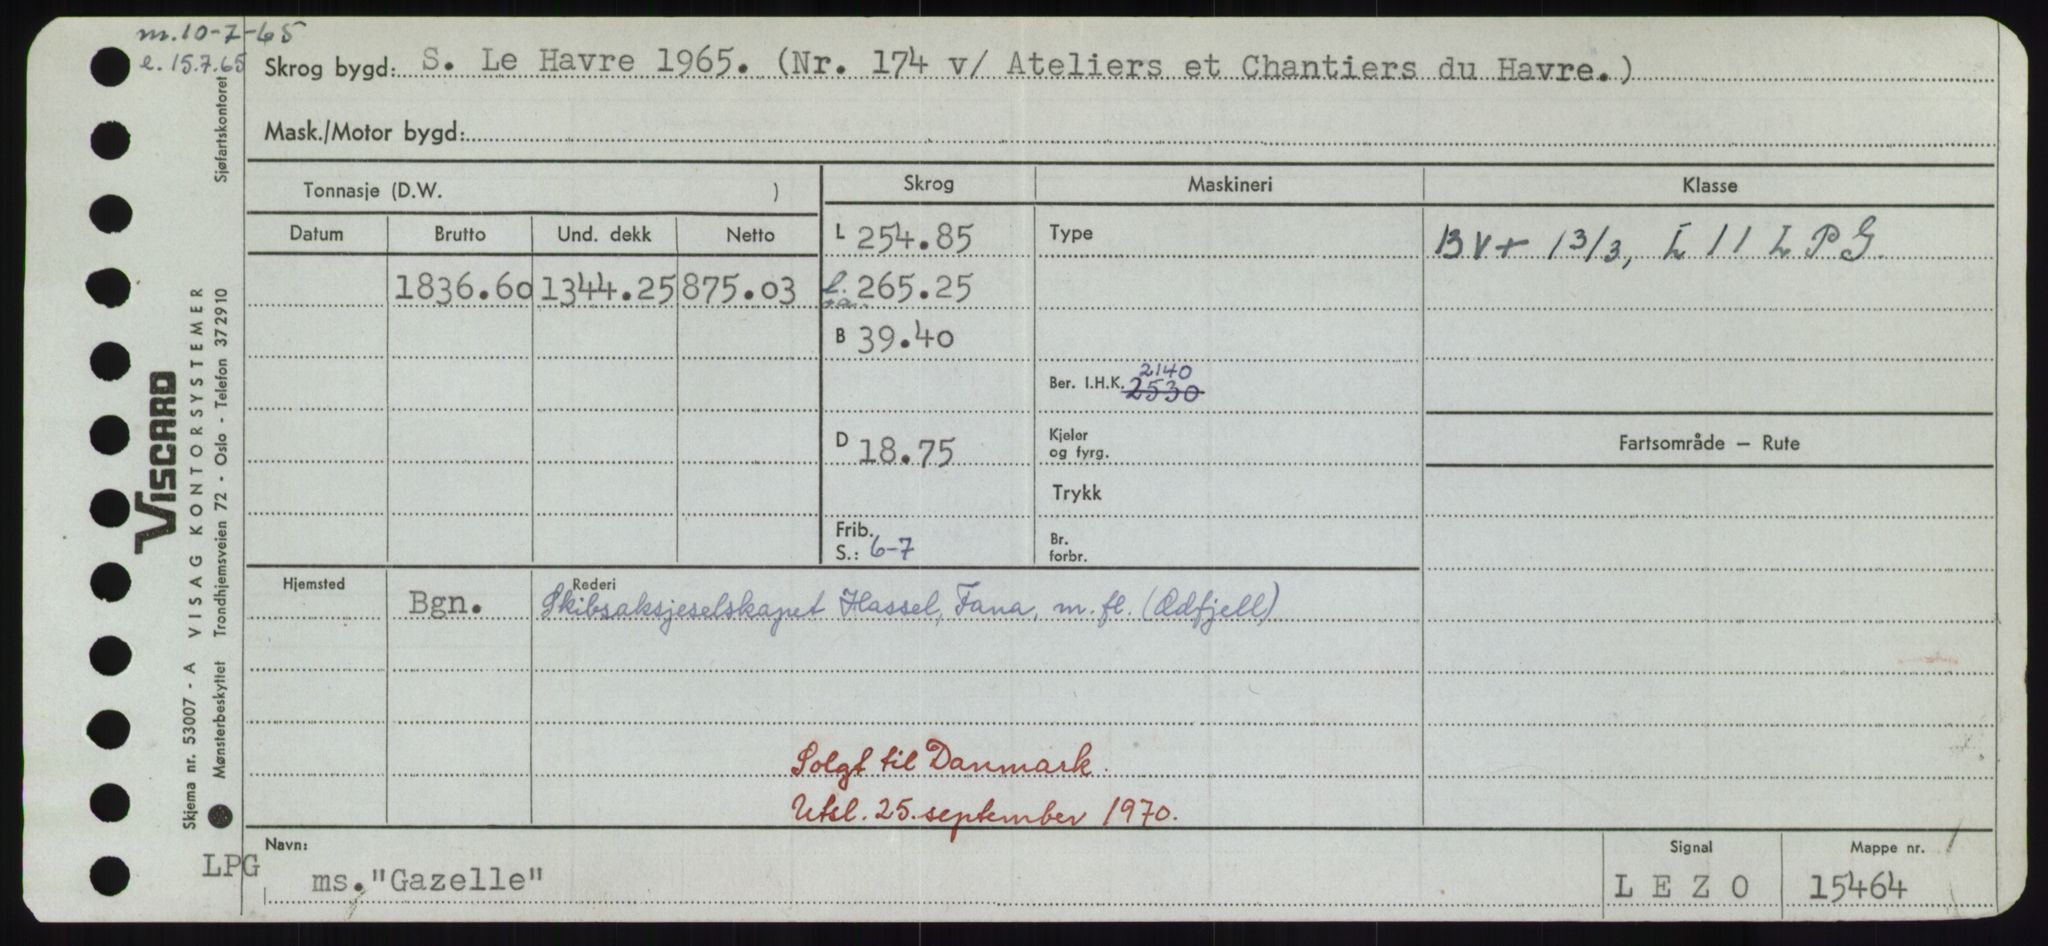 m. 10-7-65
e. 15.7.65
Skrog bygd: S. Le Havre 1965. (Nr. 174 v/ Ateliers et Chantiers du Havre.)
Mask./Motor bygd:
Tonnasje (D.W. )
Skrog
Maskineri
Klasse
Datum
Brutto
Und. dekk
Netto
L 254.85
Type
BV+ 1 3/3, L 11 LPG.
1836.60 1344.25 875.03
l. 265.25
B 39.40
2140
Ber. I.H.K. 2530
D 18.75
Kjeler
og fyrg.
Fartsområde – Rute
Trykk
Frib.
S.: 6-7
Br.
forbr.
Hjemsted
Rederi
Bgn. Skibsaksjeselskapet Hassel, Fana, m. fl. (Odfjell)
Solgt til Danmark.
Utsl. 25. september 1970.
Navn:
Signal
Mappe nr.
LPG ms. "Gazelle"
L E Z O
15464
Sjøfartskontoret
VISCARD
VISAG KONTORSYSTEMER
Trondhjemsveien 72 - Oslo - Telefon 37 29 10
Skjema nr. 53007 - A
Mønsterbeskyttet